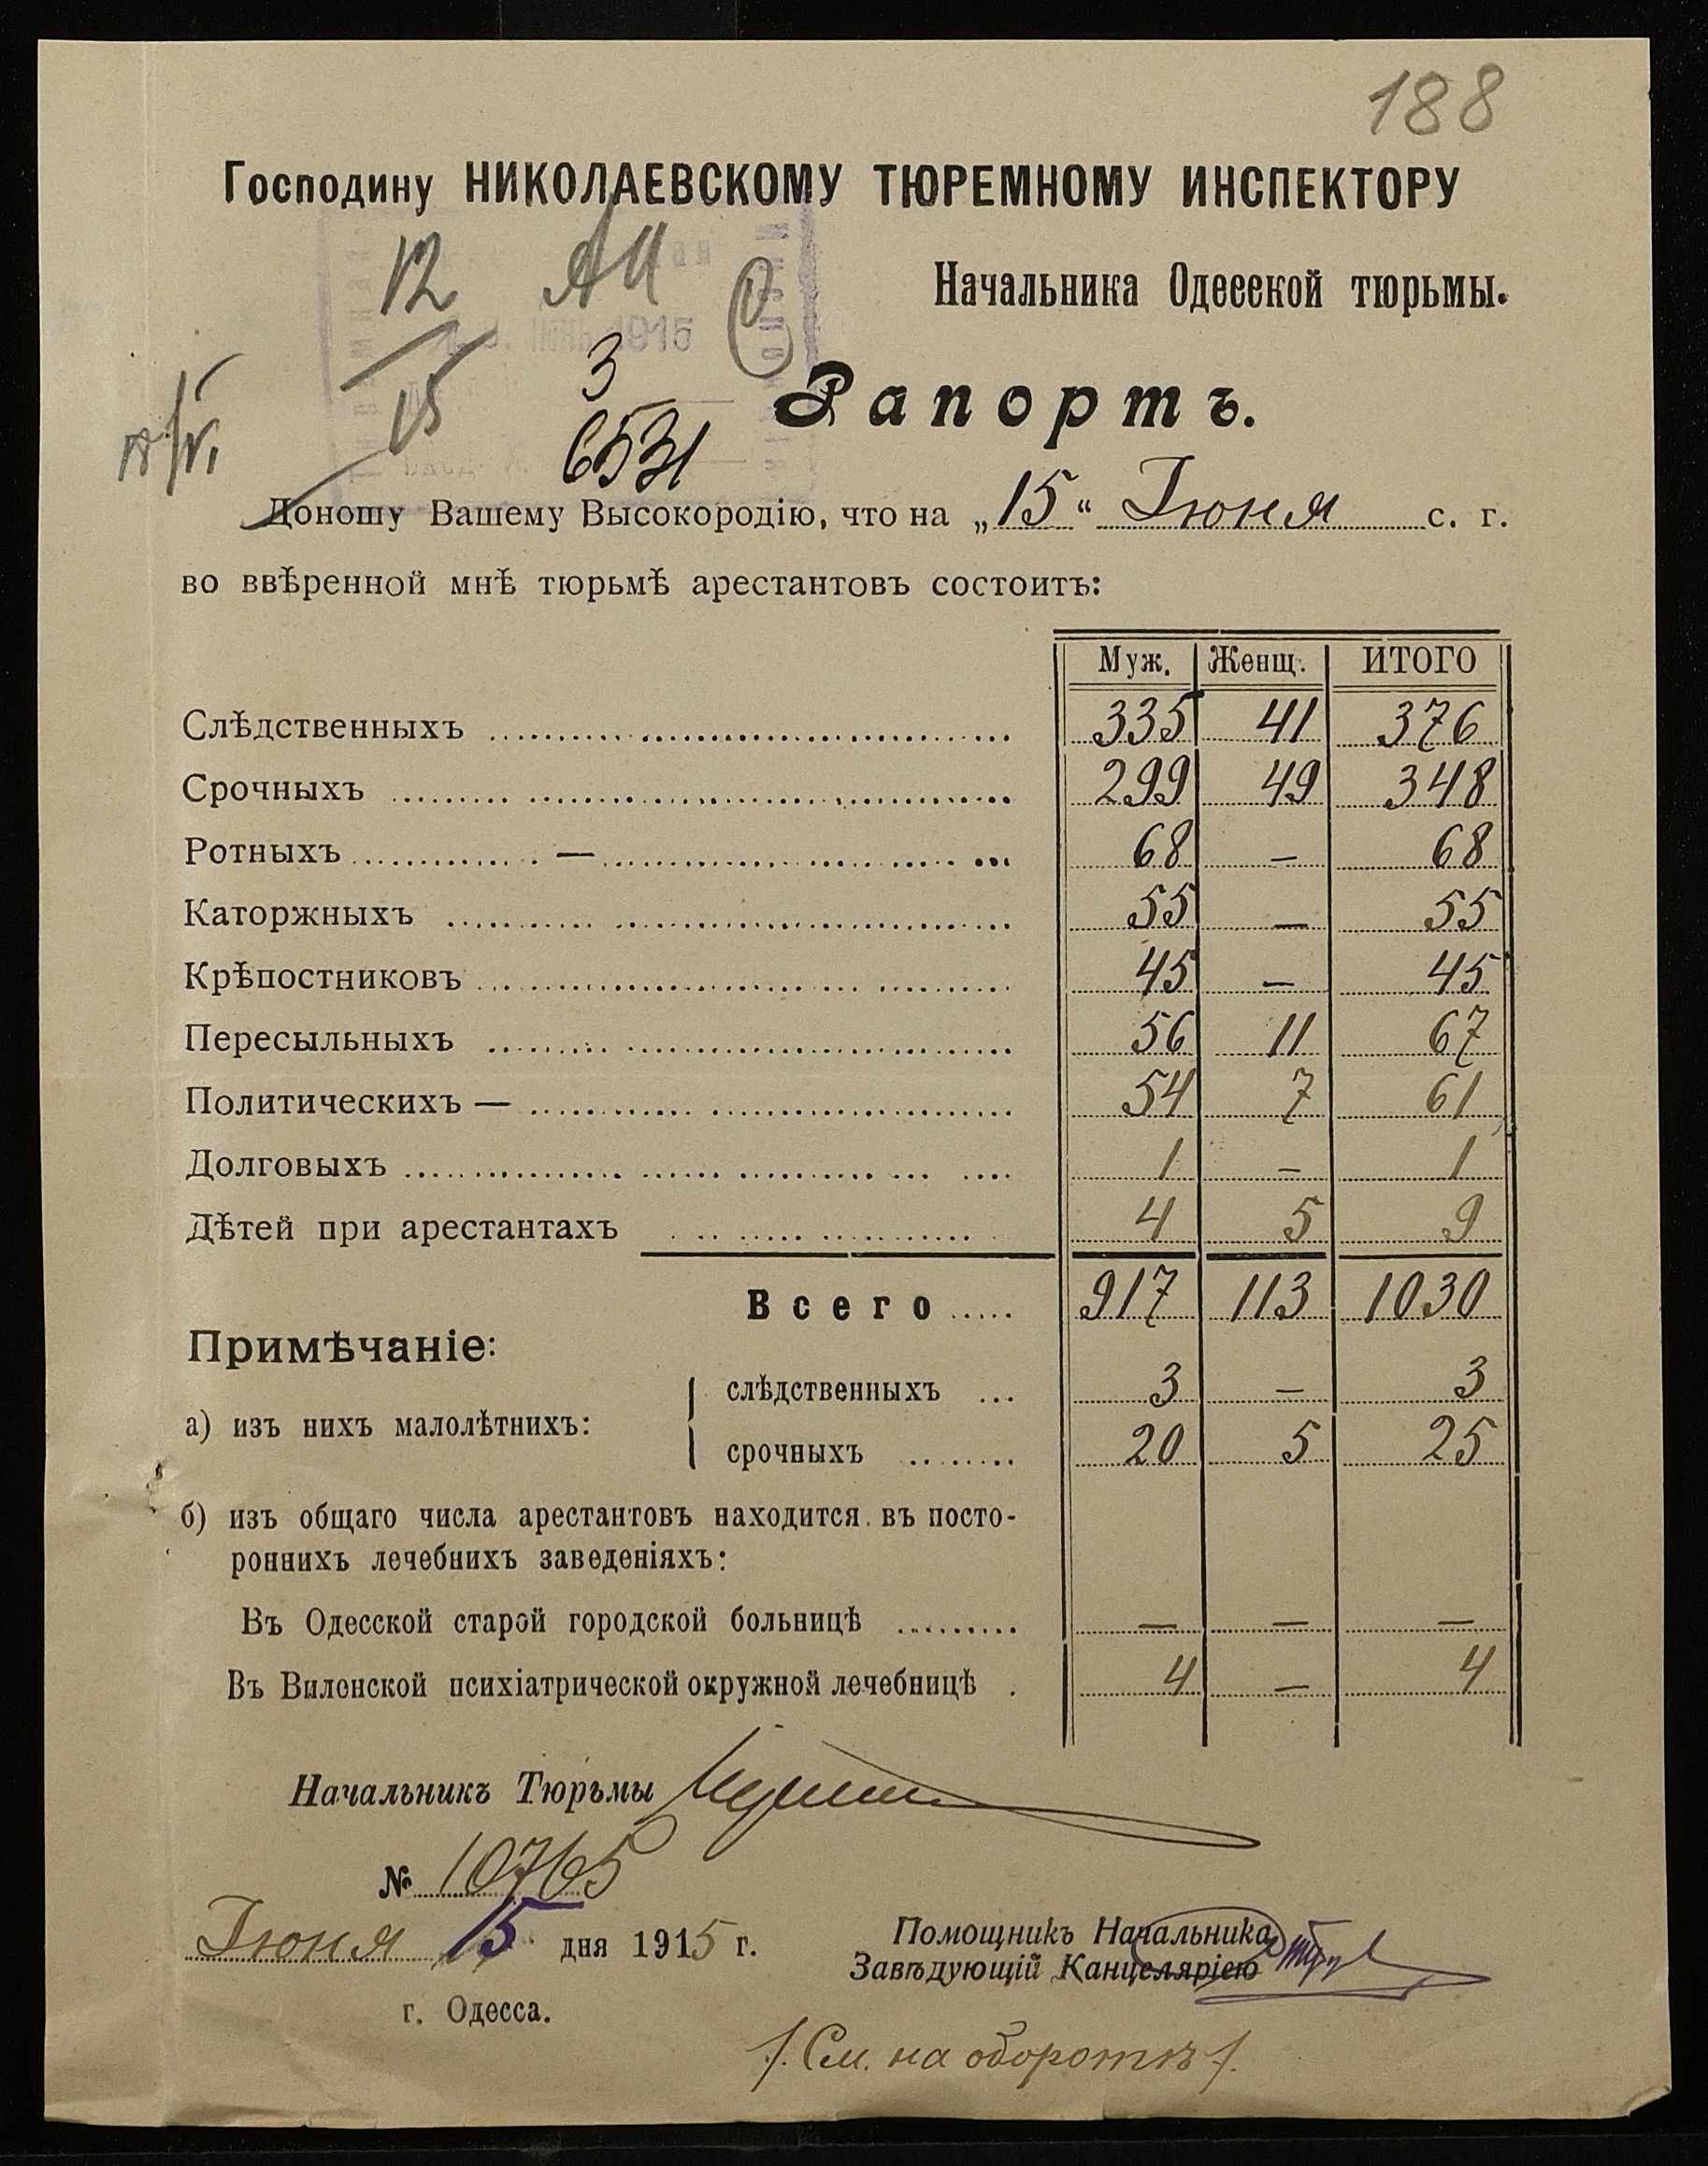 188
Господину НИКОЛАЕВСКОМУ ТЮРЕМНОМУ ИНСПЕКТОРУ
Начальника Одесской тюрьмы.
12
15
3
6531
Рапортъ.
Доношу Вашему Высокородію, что на „15“ Іюня с. г.
во ввѣренной мнѣ тюрьмѣ арестантовъ состоитъ:
Муж. Женщ. ИТОГО
Слѣдственныхъ 335 41 376
Срочныхъ 299 49 348
Ротныхъ — 68 — 68
Каторжныхъ 55 — 55
Крѣпостниковъ 45 — 45
Пересыльныхъ 56 11 67
Политическихъ — 54 7 61
Долговыхъ 1 — 1
Дѣтей при арестантахъ 4 5 9
Всего 917 113 1030
Примѣчаніе:
а) изъ нихъ малолѣтнихъ: слѣдственныхъ 3 — 3
срочныхъ 20 5 25
б) изъ общаго числа арестантовъ находится въ посто-
роннихъ лечебнихъ заведеніяхъ:
Въ Одесской старой городской больницѣ — — —
Въ Виленской психіатрической окружной лечебницѣ 4 — 4
Начальникъ Тюрьмы
№ 10765
Іюня 15 дня 1915 г.
г. Одесса.
Помощникъ Начальника
Завѣдующій Канцеляріею
/. См. на оборотѣ /.